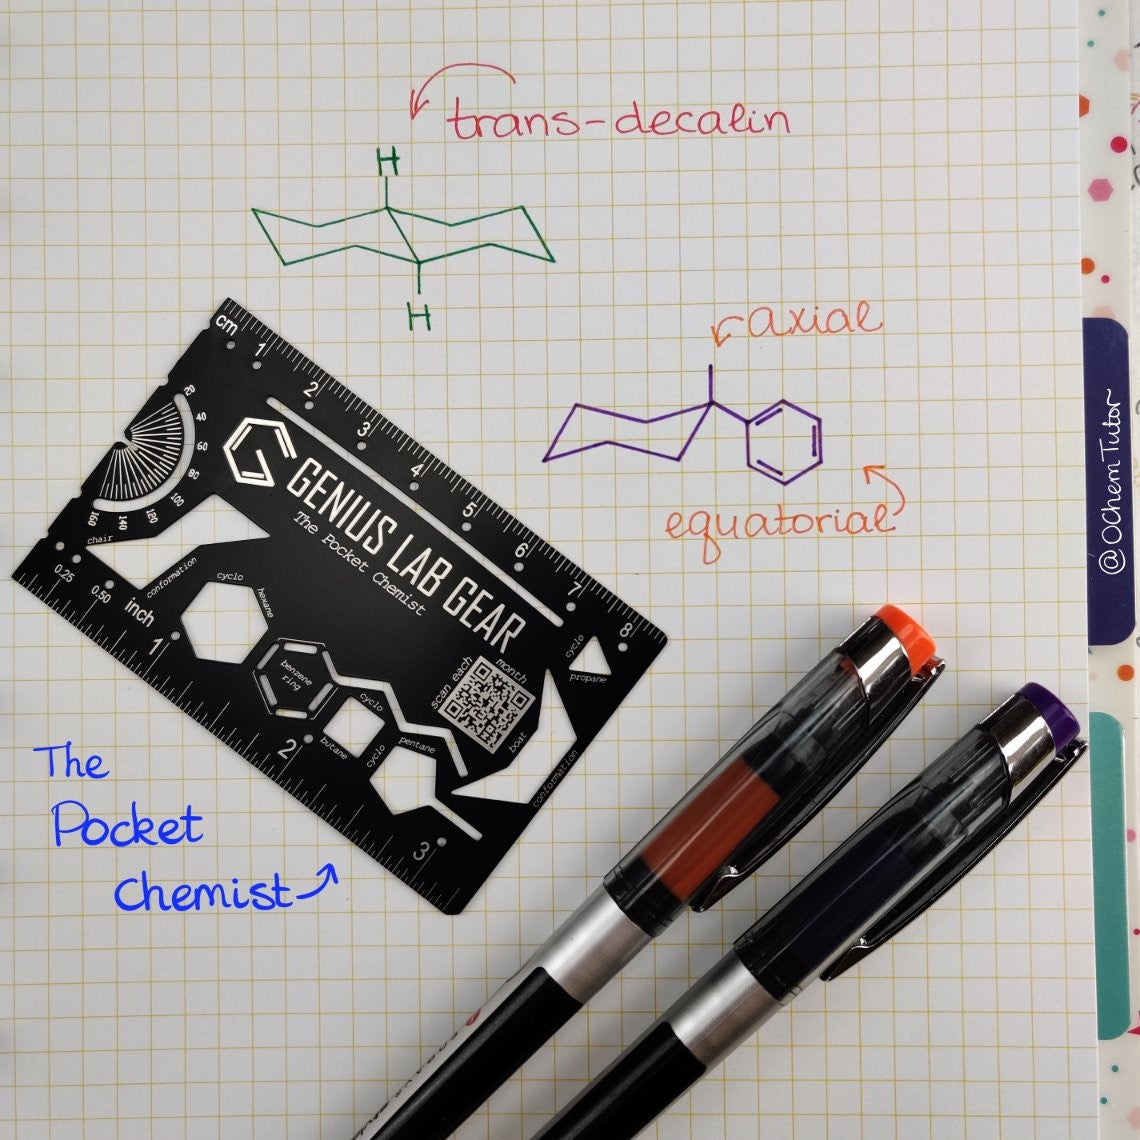 trans-decalin
H
H
axial
equatorial
@OChemTutor
cm
1
2
3
4
5
6
7
8
20
40
60
80
100
120
140
160
GENIUS LAB GEAR
The Pocket Chemist
chair
conformation
0.25
0.50
inch
1
2
3
cyclo
hexane
benzene
ring
cyclo
butane
cyclo
pentane
scan each
month
boat
conformation
cyclo
propane
The
Pocket
Chemist